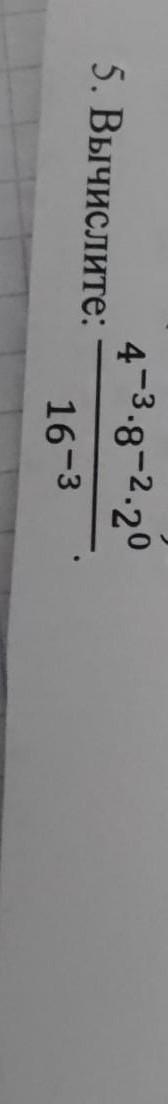 5. Вычислите: \frac{4^{-3} \cdot 8^{-2} \cdot 2^{0}}{16^{-3}}.